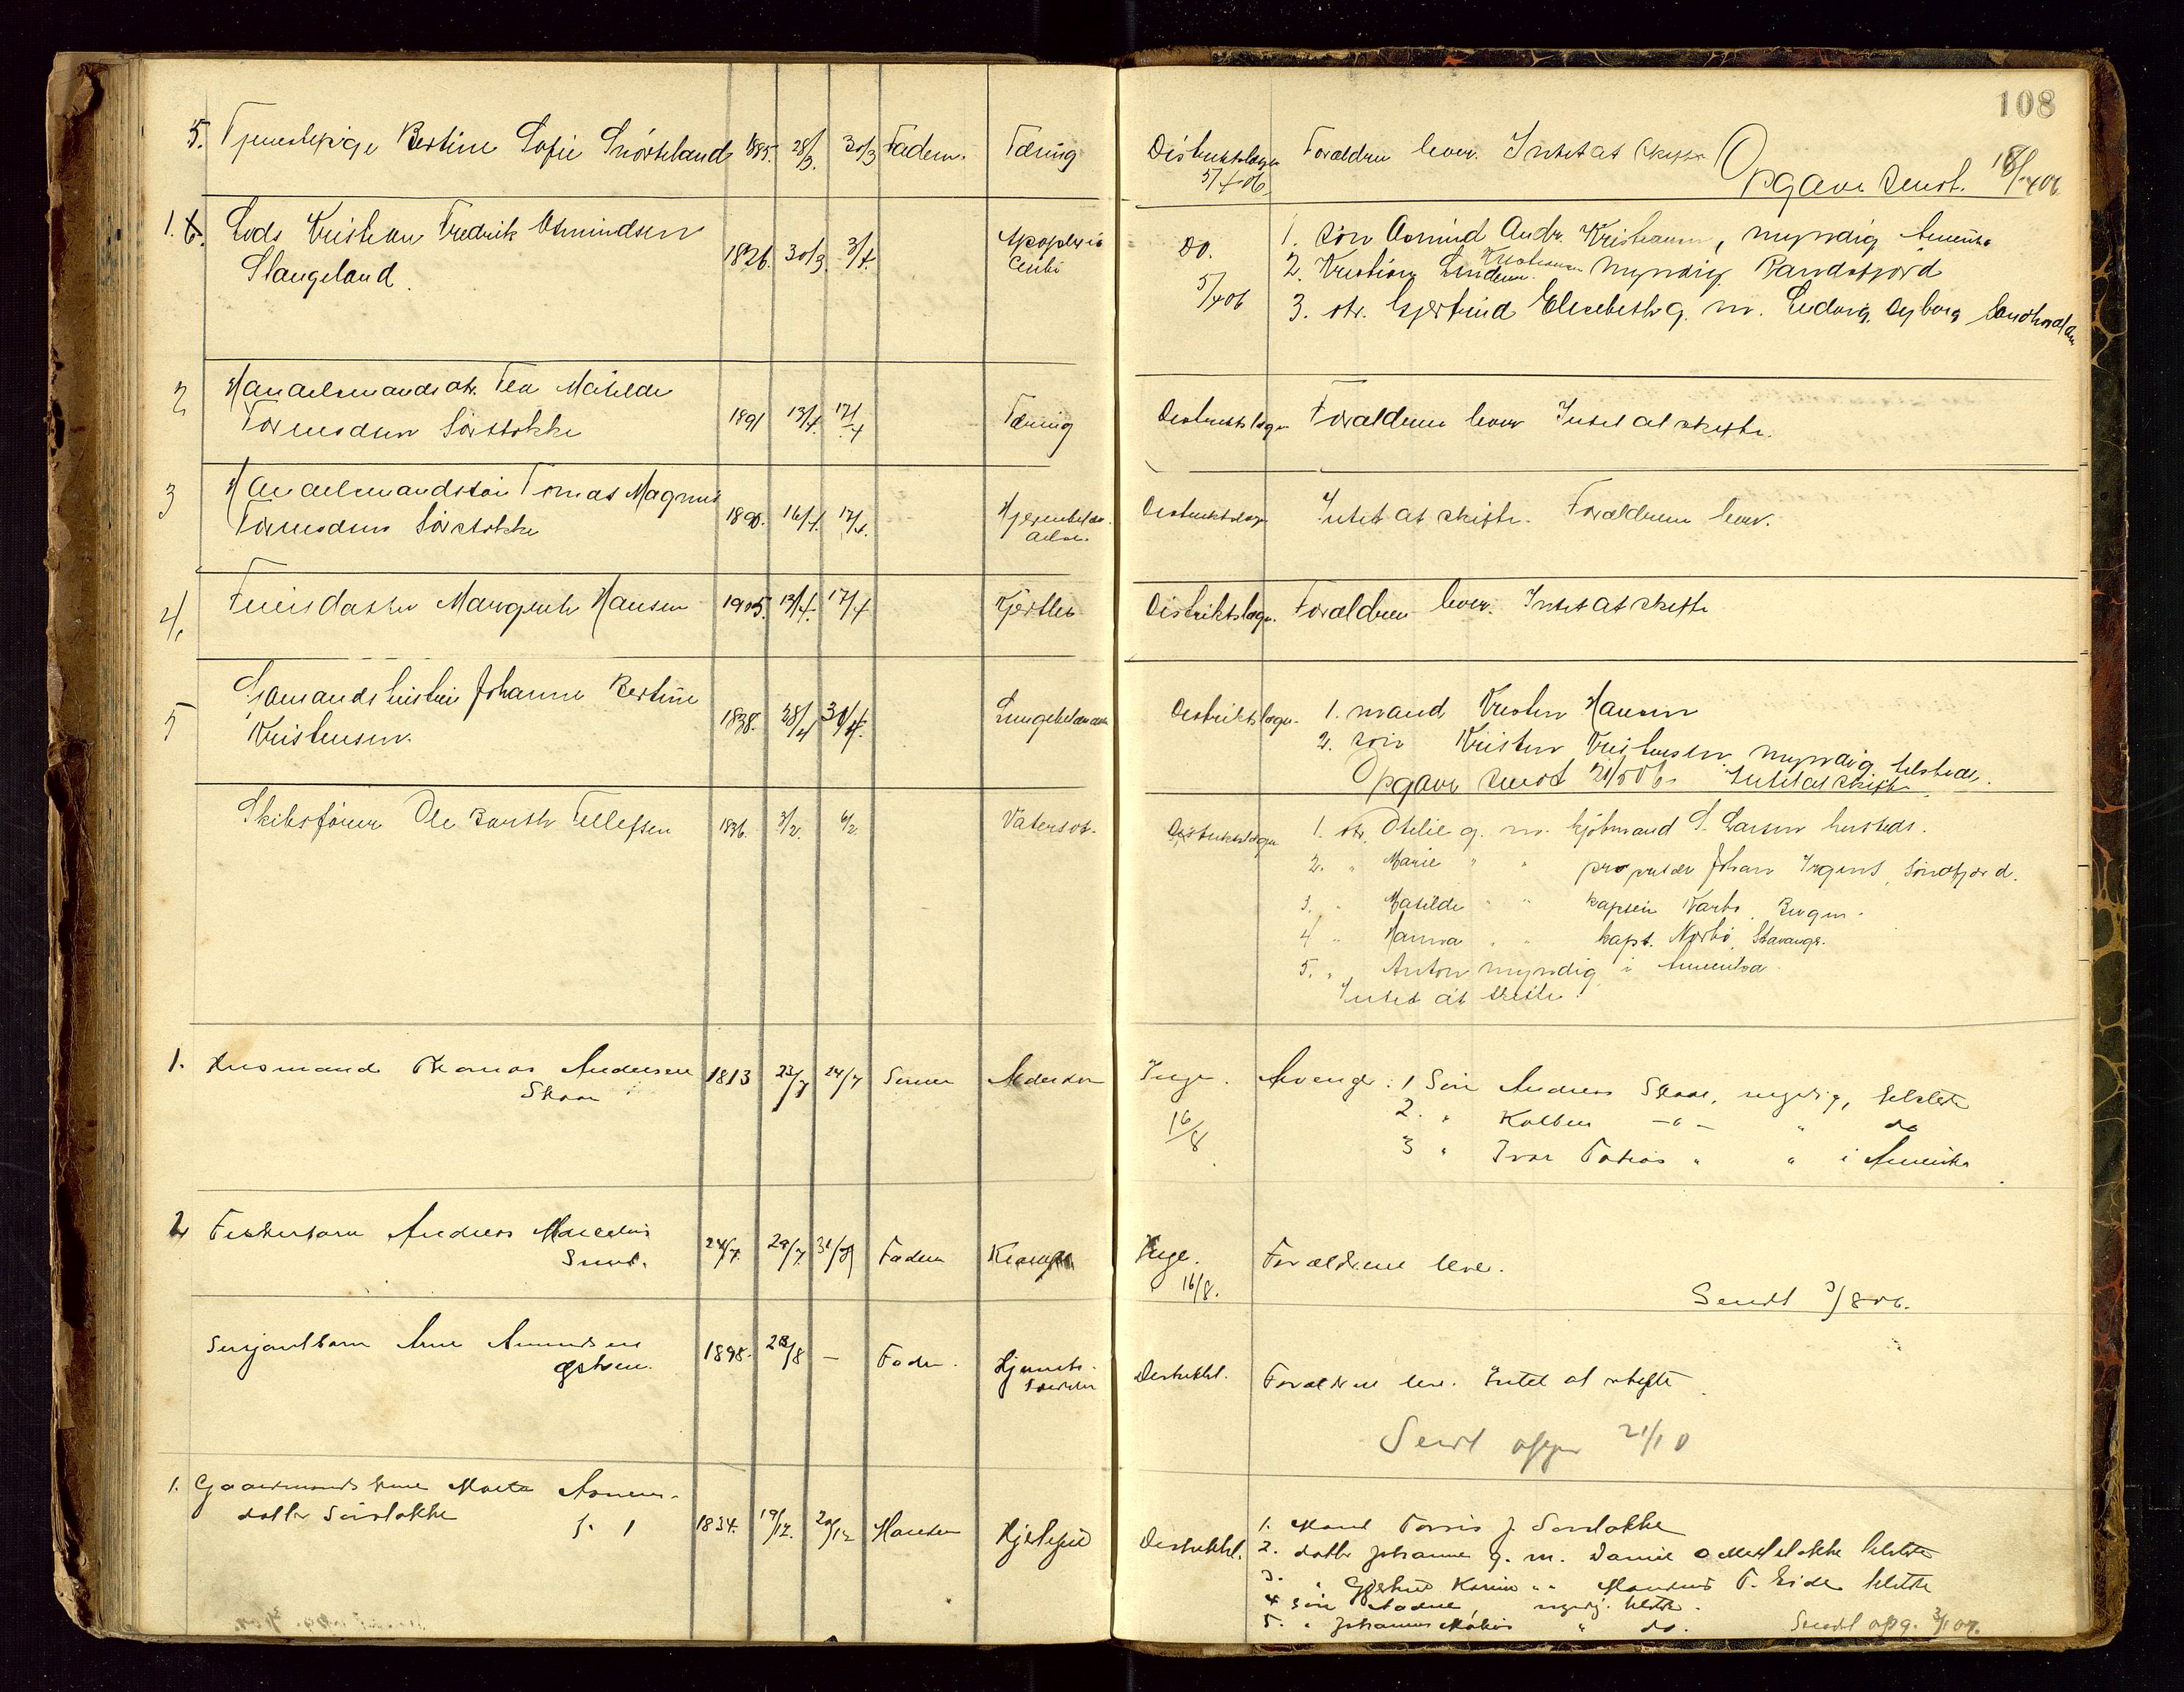 108
5. Tjenestepige Bertine Sofie Snørteland 1885. 28/3. 30/3 Faderen. Tæring Distriktslægen 5/4 06. Forældrene lever. Intet at skifte. Opgave sendt. 18/4 06
1. 6. Lods Kristian Fredrik Asmundsen
Stangeland. 1826. 30/3. 3/4. Apoplexia
cerebri Do. 5/4 06
1. søn Asmund Andr. Kristiansen, myndig Amerika
2. Kristian Linden Kristiansen myndig Randsfjord
3. dtr. Gjertrud Elisebeth g. m. Ludvig Nyborg
2 Handelsmandsdtr. Tea Matilde
Tormodsen Sørstokke 1891 13/4. 17/4 Tæring Distriktslægen Forældrene lever Intet at skifte.
3 Handelsmandssøn Tomas Magnus
Tormodsen Sørstokke 1890. 16/4. 17/4. Distriktslægen Intet at skifte. Forældrene lever.
4. datter Margrete Hansen 1905. 13/4. 17/4 Kjertler Distriktslægen. Forældrene lever. Intet at skifte
5 Sjømandshustru Johanne Bertine
Kristensen. 1838. 28/4 30/4. Distriktslægen.
1. mand Kristen Hansen
2. søn Kristen Kristensen myndig tilstede.
Opgave sendt 21/5 06. Intet at skifte
Skibsfører Ole Barth Tellefsen 1836. 3/2. 6/2. Vatersot. Distriktslægen
1. dtr. Otelie g. m. kjøbmand S. Larsen hersteds.
2. " Marie " " proprietær Johan Irgens, Søndfjord.
3. " Matilde " " kaptein Bergen.
4 " Hanna " " kapt. Norbø, Stavanger.
5. " Anton myndig i Amerika.
Intet at skifte.
1. Husmand Thomas Andersen
Skaar 1813 23/7 24/7 Sønnen Alderdom Inge. 16/8
Arvinger: 1 Søn Andreas Skaar, myndig, tilstede
2. " Kolben — " — " do
3 " Ivar Tobias " " i Amerika
2 Fiskerbarn Andreas Marcelius
Sund. 24/7. 29/7. 31/7 Faderen Krampe Inge. 16/8. Forældrene lever.
Sendt 3/8 06.
Sersjantbarn Arne Amundsen
Østhun. 1898. 28/8 — Fader. Distriktsl. Forældrene lever. Intet at skifte
Sendt opgave 21/10
1. Gaardmandskone Marta Asmunds-
datter Sørstokke 1834. 19/12. 20/12 Manden Hjertefeil Distriktsl.
1. Mand Tormis J. Sørstokke
2. datter Johanne g. m. Daniel O. Medstokke tilstede
3. " Gjertrud Karine " " T. Eide tilstede
4 søn myndig. tilstede.
5. " Johannes " do.
Sendt opg. 3/1 07.